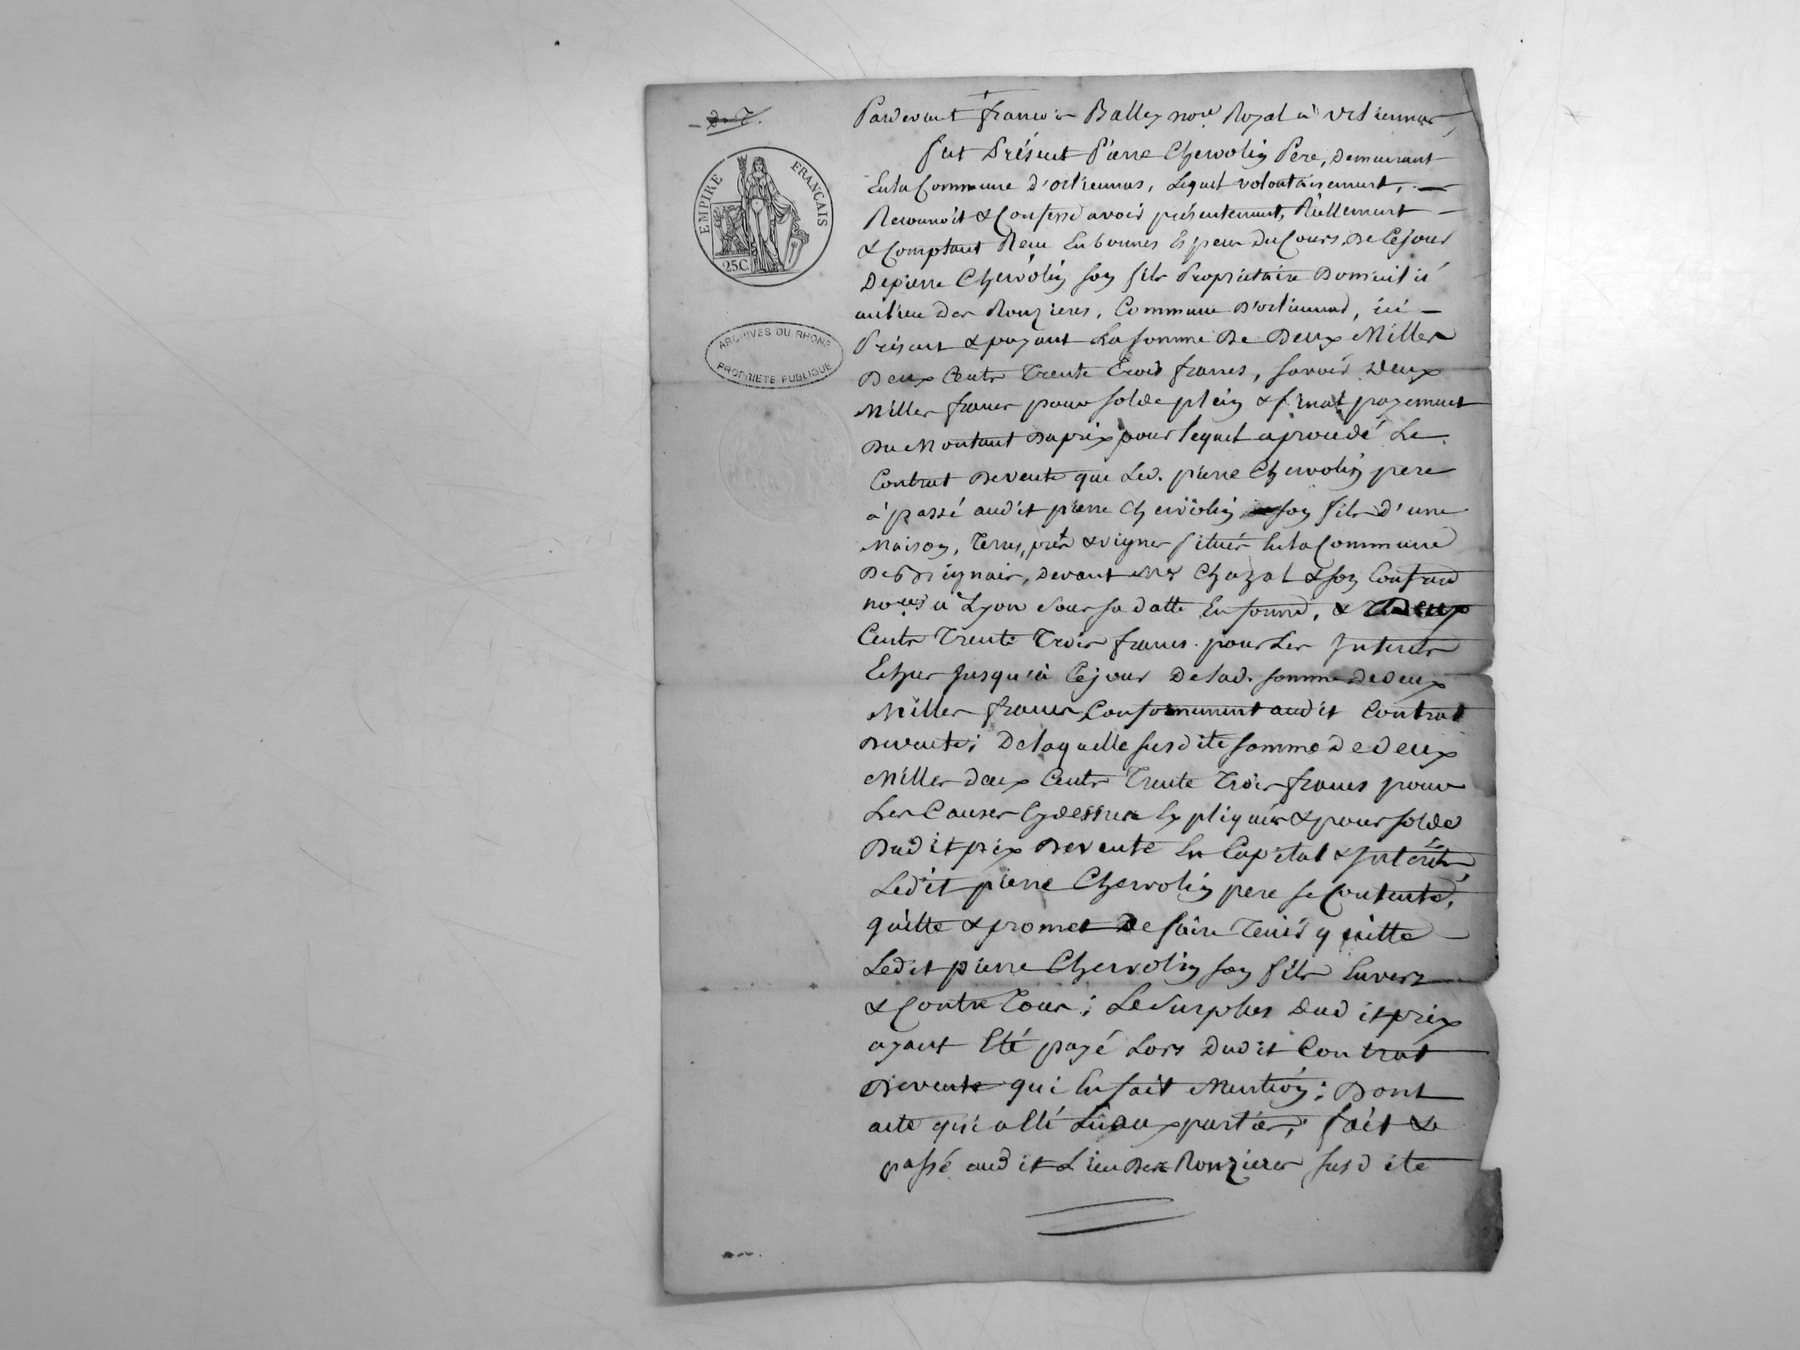 EMPIRE FRANÇAIS
25C.
ARCHIVES DU RHONE
PROPRIETE PUBLIQUE
Pardevant françois Balley no.re Royal à
fut Présent Pierre Chervolin Pere, Demeurant
En la Commune d'octiennas, Lequel volontairement,
Reconnoit & Confesse avoir présentement, Réellement
& Comptant Recu En bonnes Especes Du Cours De Cejour
De pierre Chervolin son fils Propriétaire Domicilié
au lieu Des Ronzieres, Commune D'octiennas, ici
Présent & payant La somme De Deux Milles
Deux Cents Trente Trois francs, savoir Deux
Milles francs pour solde plein & final payement
Du Montant Du prix pour lequel a procedé Le
Contrat De vente que Led. pierre Chervolin pere
à passé audit pierre Chervolin son fils d'une
Maison, Terres, prés & vignes situés En la Commune
De Brignais, Devant Mes Chazal & son Confrere
no.res à Lyon Sous sa datte En forme, & Deux
Cents Trente Trois francs pour Les Interets
Echus Jusqu'à Cejour De lad. somme De Deux
Milles francs Conformement audit Contrat
De vente; De laquelle susdite somme De Deux
Milles Deux Cents Trente Trois francs pour
Les Causes Cy dessus Expliqués & pour solde
Dudit prix De vente En Capital & Intérêts
Ledit pierre Chervolin pere se Contente,
quitte & promet De faire Tenir quitte
Ledit pierre Chervolin son fils Envers
& Contre Tous; Le Surplus Dudit prix
ayant Eté payé Lors Dudit Contrat
De vente qui En fait Mention; Dont
acte qui a Eté Lu aux parties; fait &
passé audit Lieu Des Ronzieres susdite